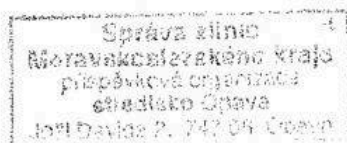 Správa silnic
Moravskoslezského kraje
příspěvková organizace
středisko Opava
Joži Davida 2, 747 06 Opava